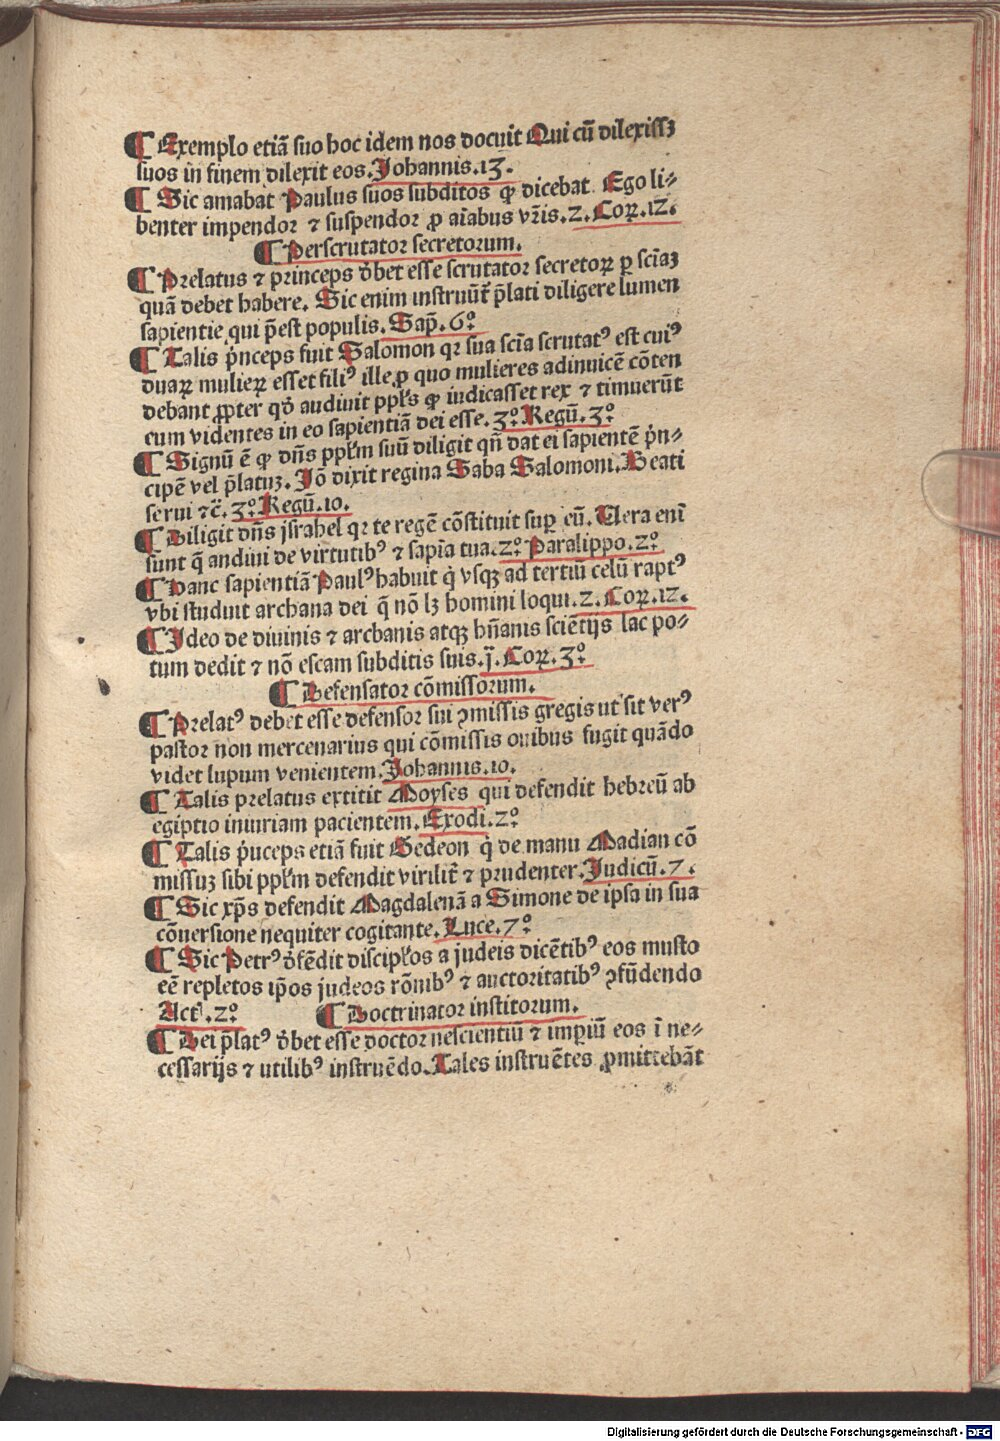 ¶ Exemplo etiã suo hoc idem nos docuit Qui cũ dilexissꝫ
suos in finem dilexit eos. Johannis .13.
¶ Sic amabat Paulus suos subditos ꝙ dicebat Ego li⸗
benter impendor ⁊ suspendor ꝓ aĩabus vr̃is. 2. Coꝝ. 12.
¶ Perscrutator secretorum.
¶ Prelatus ⁊ princeps d̾bet esse scrutator secretoꝝ ꝑ scĩaꝫ
quã debet habere. Sic enim instruũt̃ p̃lati diligere lumen
sapientie qui p̃est populis. Sap̃. 6º
¶ Talis p̃nceps fuit Salomon qꝛ sua scĩa scrutatꝰ est cuiꝰ
duaꝝ mulieꝝ esset filiꝰ ille ꝓ quo mulieres adinuicẽ cõten
debant ꝓpter qd̾ audiuit ppl̃s ꝙ iudicasset rex ⁊ timuerũt
eum videntes in eo sapientiã dei esse. 3º. Regũ. 3º
¶ Signũ ẽ ꝙ dñs ppl̃m suũ diligit qñ dat ei sapientẽ p̃n⸗
cipẽ vel p̃latuꝫ. Jõ dixit regina Saba Salomoni. Beati
serui ⁊c̃. 3º. Regũ. 10.
¶ Diligit dñs jsrahel qꝛ te regẽ cõstituit suꝑ eũ. Uera enĩ
sunt q̃ audiui de virtutibꝰ ⁊ sapĩa tua. 2º Paralippo. 2º
¶ Hanc sapientiã Paulꝰ habuit q̃ vsqꝫ ad tertiũ celũ raptꝰ
vbi studuit archana dei q̃ nõ lꝫ homini loqui. 2. Coꝝ. 12.
¶ Jdeo de diuinis ⁊ archanis atqꝫ hũanis sciẽtijs lac po⸗
tum dedit ⁊ nõ escam subditis suis. j̃. Coꝝ. 3º
¶ Defensator cõmissorum.
¶ Prelatꝰ debet esse defensor sui ꝯmissis gregis ut sit verꝰ
pastor non mercenarius qui cõmissis ouibus fugit quãdo
videt lupum venientem. Johannis .10.
¶ Talis prelatus extitit Moyses qui defendit hebreũ ab
egiptio iniuriam pacientem. Exodi. 2º
¶ Talis p̃nceps etiã fuit Gedeon q̃ de manu Madian cõ
missuꝫ sibi ppl̃m defendit virilit̃ ⁊ prudenter. Judicũ. 7.
¶ Sic xp̃s defendit Magdalenã a Simone de ipsa in sua
cõuersione nequiter cogitante. Luce. 7º
¶ Sic Petrꝰ d̾fẽdit discipl̃os a judeis dicẽtibꝰ eos musto
eẽ repletos ip̃os judeos rõnibꝰ ⁊ auctoritatibꝰ ꝯfũdendo
Act̃. 2º ¶ Doctrinator institorum.
¶ Dei p̃latꝰ d̾bet esse doctor nescientiũ ⁊ imꝑiũ eos ĩ ne⸗
cessarijs ⁊ utilibꝰ instruẽdo. Tales instruẽtes ꝓmittebãt
Digitalisierung gefördert durch die Deutsche Forschungsgemeinschaft - DFG